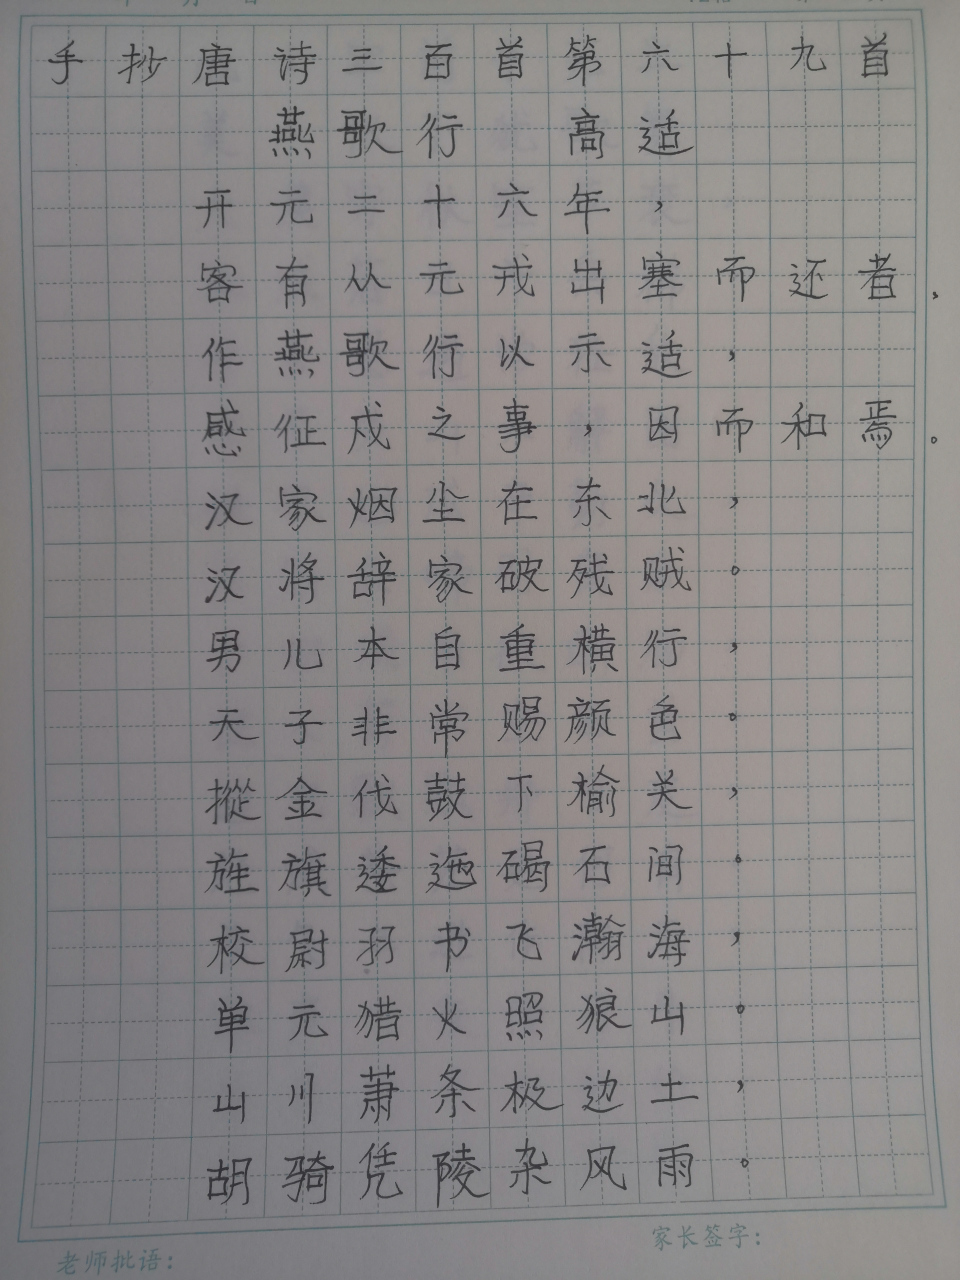 手抄唐诗三百首第六十九首
燕歌行 高适
开元二十六年，
客有从元戎出塞而还者，
作燕歌行以示适，
感征戍之事，因而和焉。
汉家烟尘在东北，
汉将辞家破残贼。
男儿本自重横行，
天子非常赐颜色。
摐金伐鼓下榆关，
旌旗逶迤碣石间。
校尉羽书飞瀚海，
单元猎火照狼山。
山川萧条极边土，
胡骑凭陵杂风雨。
家长签字：
老师批语：